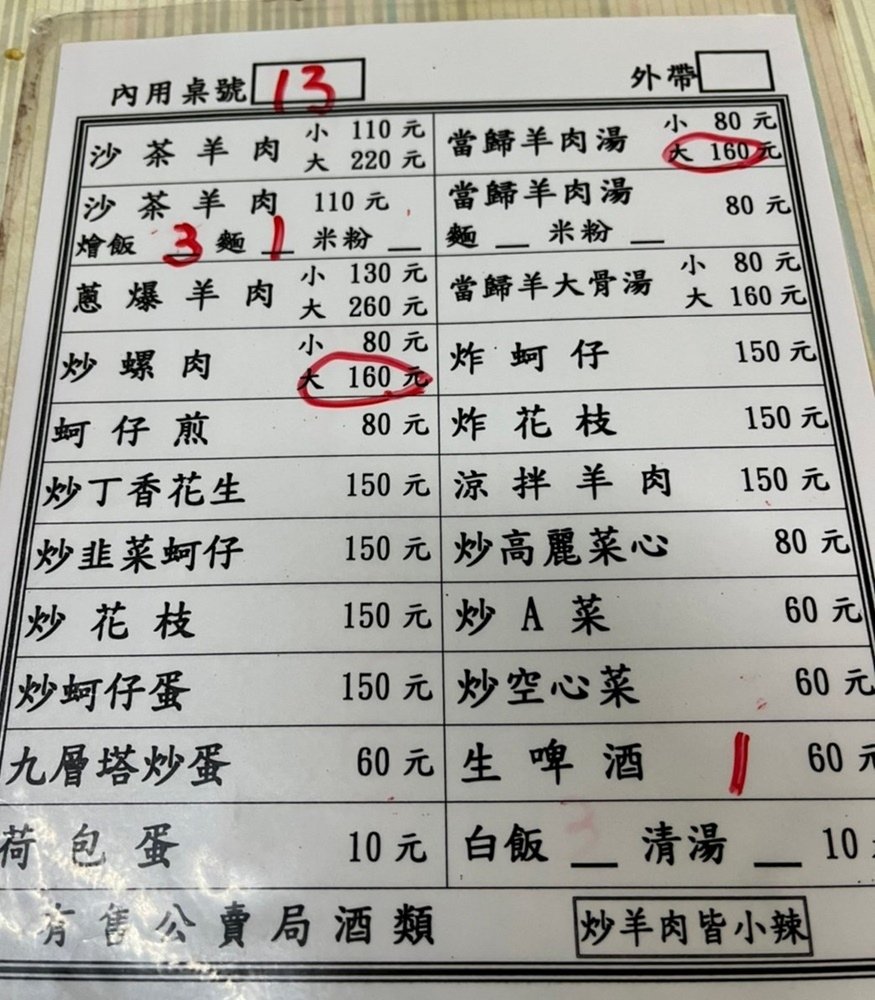 內用桌號 13 外帶
沙茶羊肉 小 110 元
大 220 元
當歸羊肉湯 小 80 元
大 160 元
沙茶羊肉 110 元
燴飯 3 麵 1 米粉 __
當歸羊肉湯 80 元
麵 __ 米粉 __
蔥爆羊肉 小 130 元
大 260 元
當歸羊大骨湯 小 80 元
大 160 元
炒螺肉 小 80 元
大 160 元
炸蚵仔 150 元
蚵仔煎 80 元
炸花枝 150 元
炒丁香花生 150 元
涼拌羊肉 150 元
炒韭菜蚵仔 150 元
炒高麗菜心 80 元
炒花枝 150 元
炒A菜 60 元
炒蚵仔蛋 150 元
炒空心菜 60 元
九層塔炒蛋 60 元
生啤酒 1 60 元
荷包蛋 10 元
白飯 __ 清湯 __ 10
有售公賣局酒類
炒羊肉皆小辣